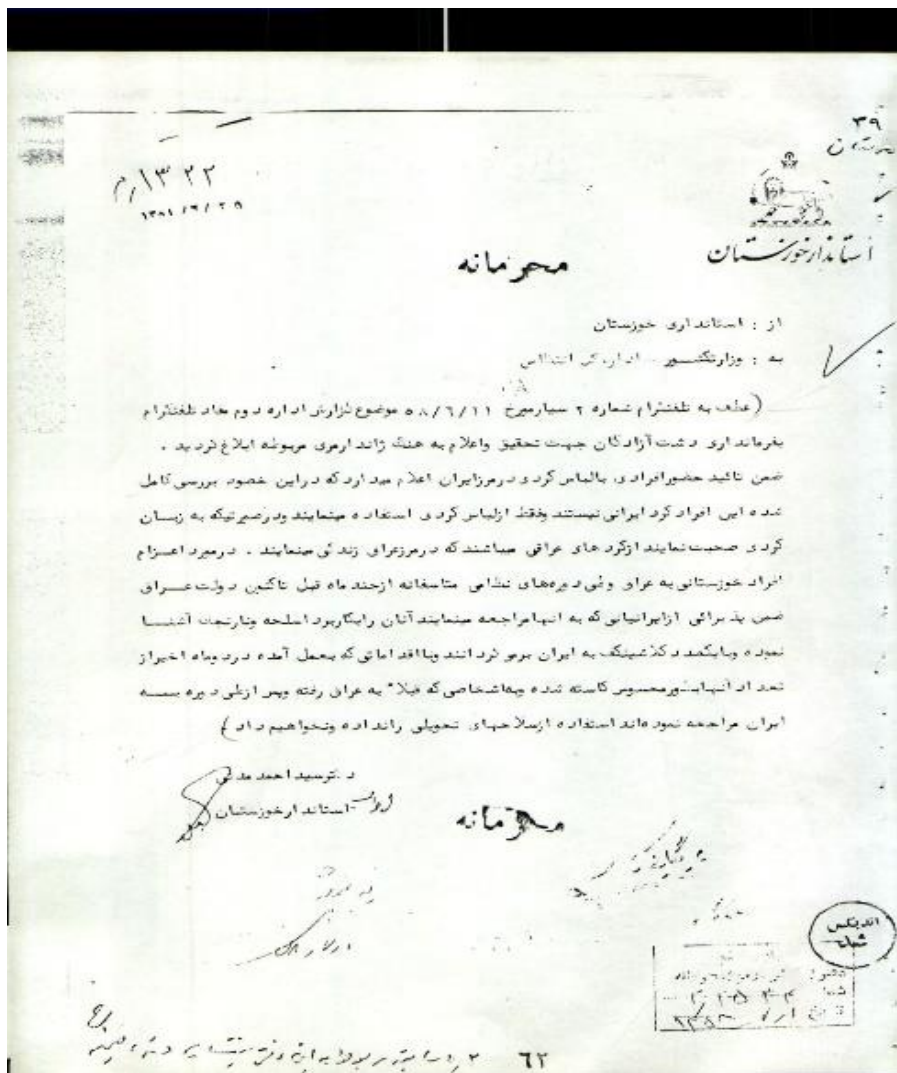 ۳۹
۱۳۲۲/م
استاندار خوزستان
محرمانه
از : استانداری خوزستان
به : وزارتکشـور - اداره کل انتظامی
(عطف به تلفنگرام شماره ۲ سیار مورخ ۵۸/۶/۱۱ موضوع گزارش اداره دوم مفاد تلفنگرام
بفرمانداری دشت آزادگان جهت تحقیق واعلام به هنگ ژاندارمری مربوطه ابلاغ گردید .
ضمن تائید حضور افرادی بالباس کردی درمرزایران اعلام میدارد که دراین خصوص بررسی کامل
شده این افراد کرد ایرانی نیستند وفقط ازلباس کردی استفاده مینمایند ودرصورتیکه به زبـان
کردی صحبت نمایند ازکردهای عراقی میباشند که درمرزعراق زندگی مینمایند . درمورد اعـزام
افراد خوزستانی به عراق وطی دوره‌های نظامی متاسفانه ازچند ماه قبل تاکنون دولت عــراق
ضمن پذیرائی ازایرانیانی که به آنها مراجعه مینمایند آنان را بکاربرد اسلحه ونارنجک آشنــا
نموده وبایکعدد کلاشینکف به ایران برمی گردانند وبااقداماتی که بعمل آمده دردوماه اخیراز
تعداد آنها بطور محسوس کاسته شده وبه اشخاصی که قبلا" به عراق رفته وپس ازطی دوره بــه
ایران مراجعه نموده‌اند استفاده ازسلاحهای تحویلی را نداده ونخواهیم داد )
دکترسید احمد مدنی
استاندارخوزستان
محرمانه
اندیکس
شد
۶۲